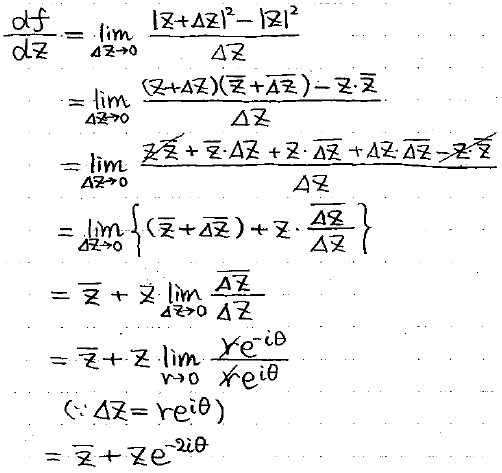 df/dz = lim_{Δz→0} (|z+Δz|² − |z|²)/Δz
= lim_{Δz→0} ((z+Δz)(z̅+Δz̅) − z·z̅)/Δz
= lim_{Δz→0} (zz̅ + z̅·Δz + z·Δz̅ + Δz·Δz̅ − z·z̅)/Δz
= lim_{Δz→0} {(z̅+Δz̅) + z·Δz̅/Δz}
= z̅ + z lim_{Δz→0} Δz̅/Δz
= z̅ + z lim_{r→0} re^{-iθ}/re^{iθ}
(∵ Δz = re^{iθ})
= z̅ + ze^{-2iθ}